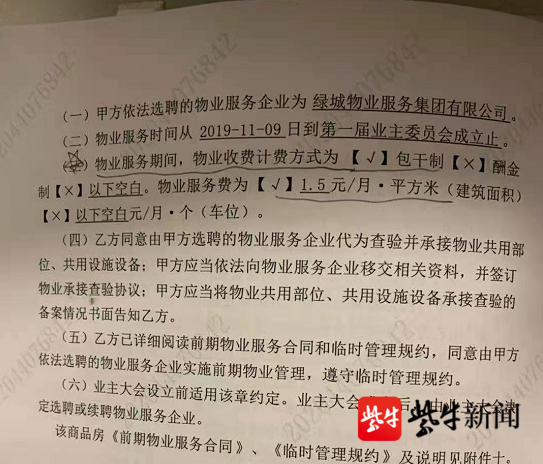 （一）甲方依法选聘的物业服务企业为 绿城物业服务集团有限公司。
（二）物业服务时间从 2019-11-09 日到第一届业主委员会成立止。
物业服务期间，物业收费计费方式为 【√】包干制【×】酬金
制【×】以下空白。物业服务费为【√】1.5 元/月·平方米（建筑面积）
【×】以下空白元/月·个（车位）。
（四）乙方同意由甲方选聘的物业服务企业代为查验并承接物业共用部
位、共用设施设备；甲方应当依法向物业服务企业移交相关资料，并签订
物业承接查验协议；甲方应当将物业共用部位、共用设施设备承接查验的
备案情况书面告知乙方。
（五）乙方已详细阅读前期物业服务合同和临时管理规约，同意由甲方
依法选聘的物业服务企业实施前期物业管理，遵守临时管理规约。
（六）业主大会设立前适用该章约定。业主大会 后，由业主大会决
定选聘或续聘物业服务企业。
该商品房《前期物业服务合同》、《临时管理规约》及说明见附件十。
紫牛 紫牛新闻
2044076842
2044076842
2044076842